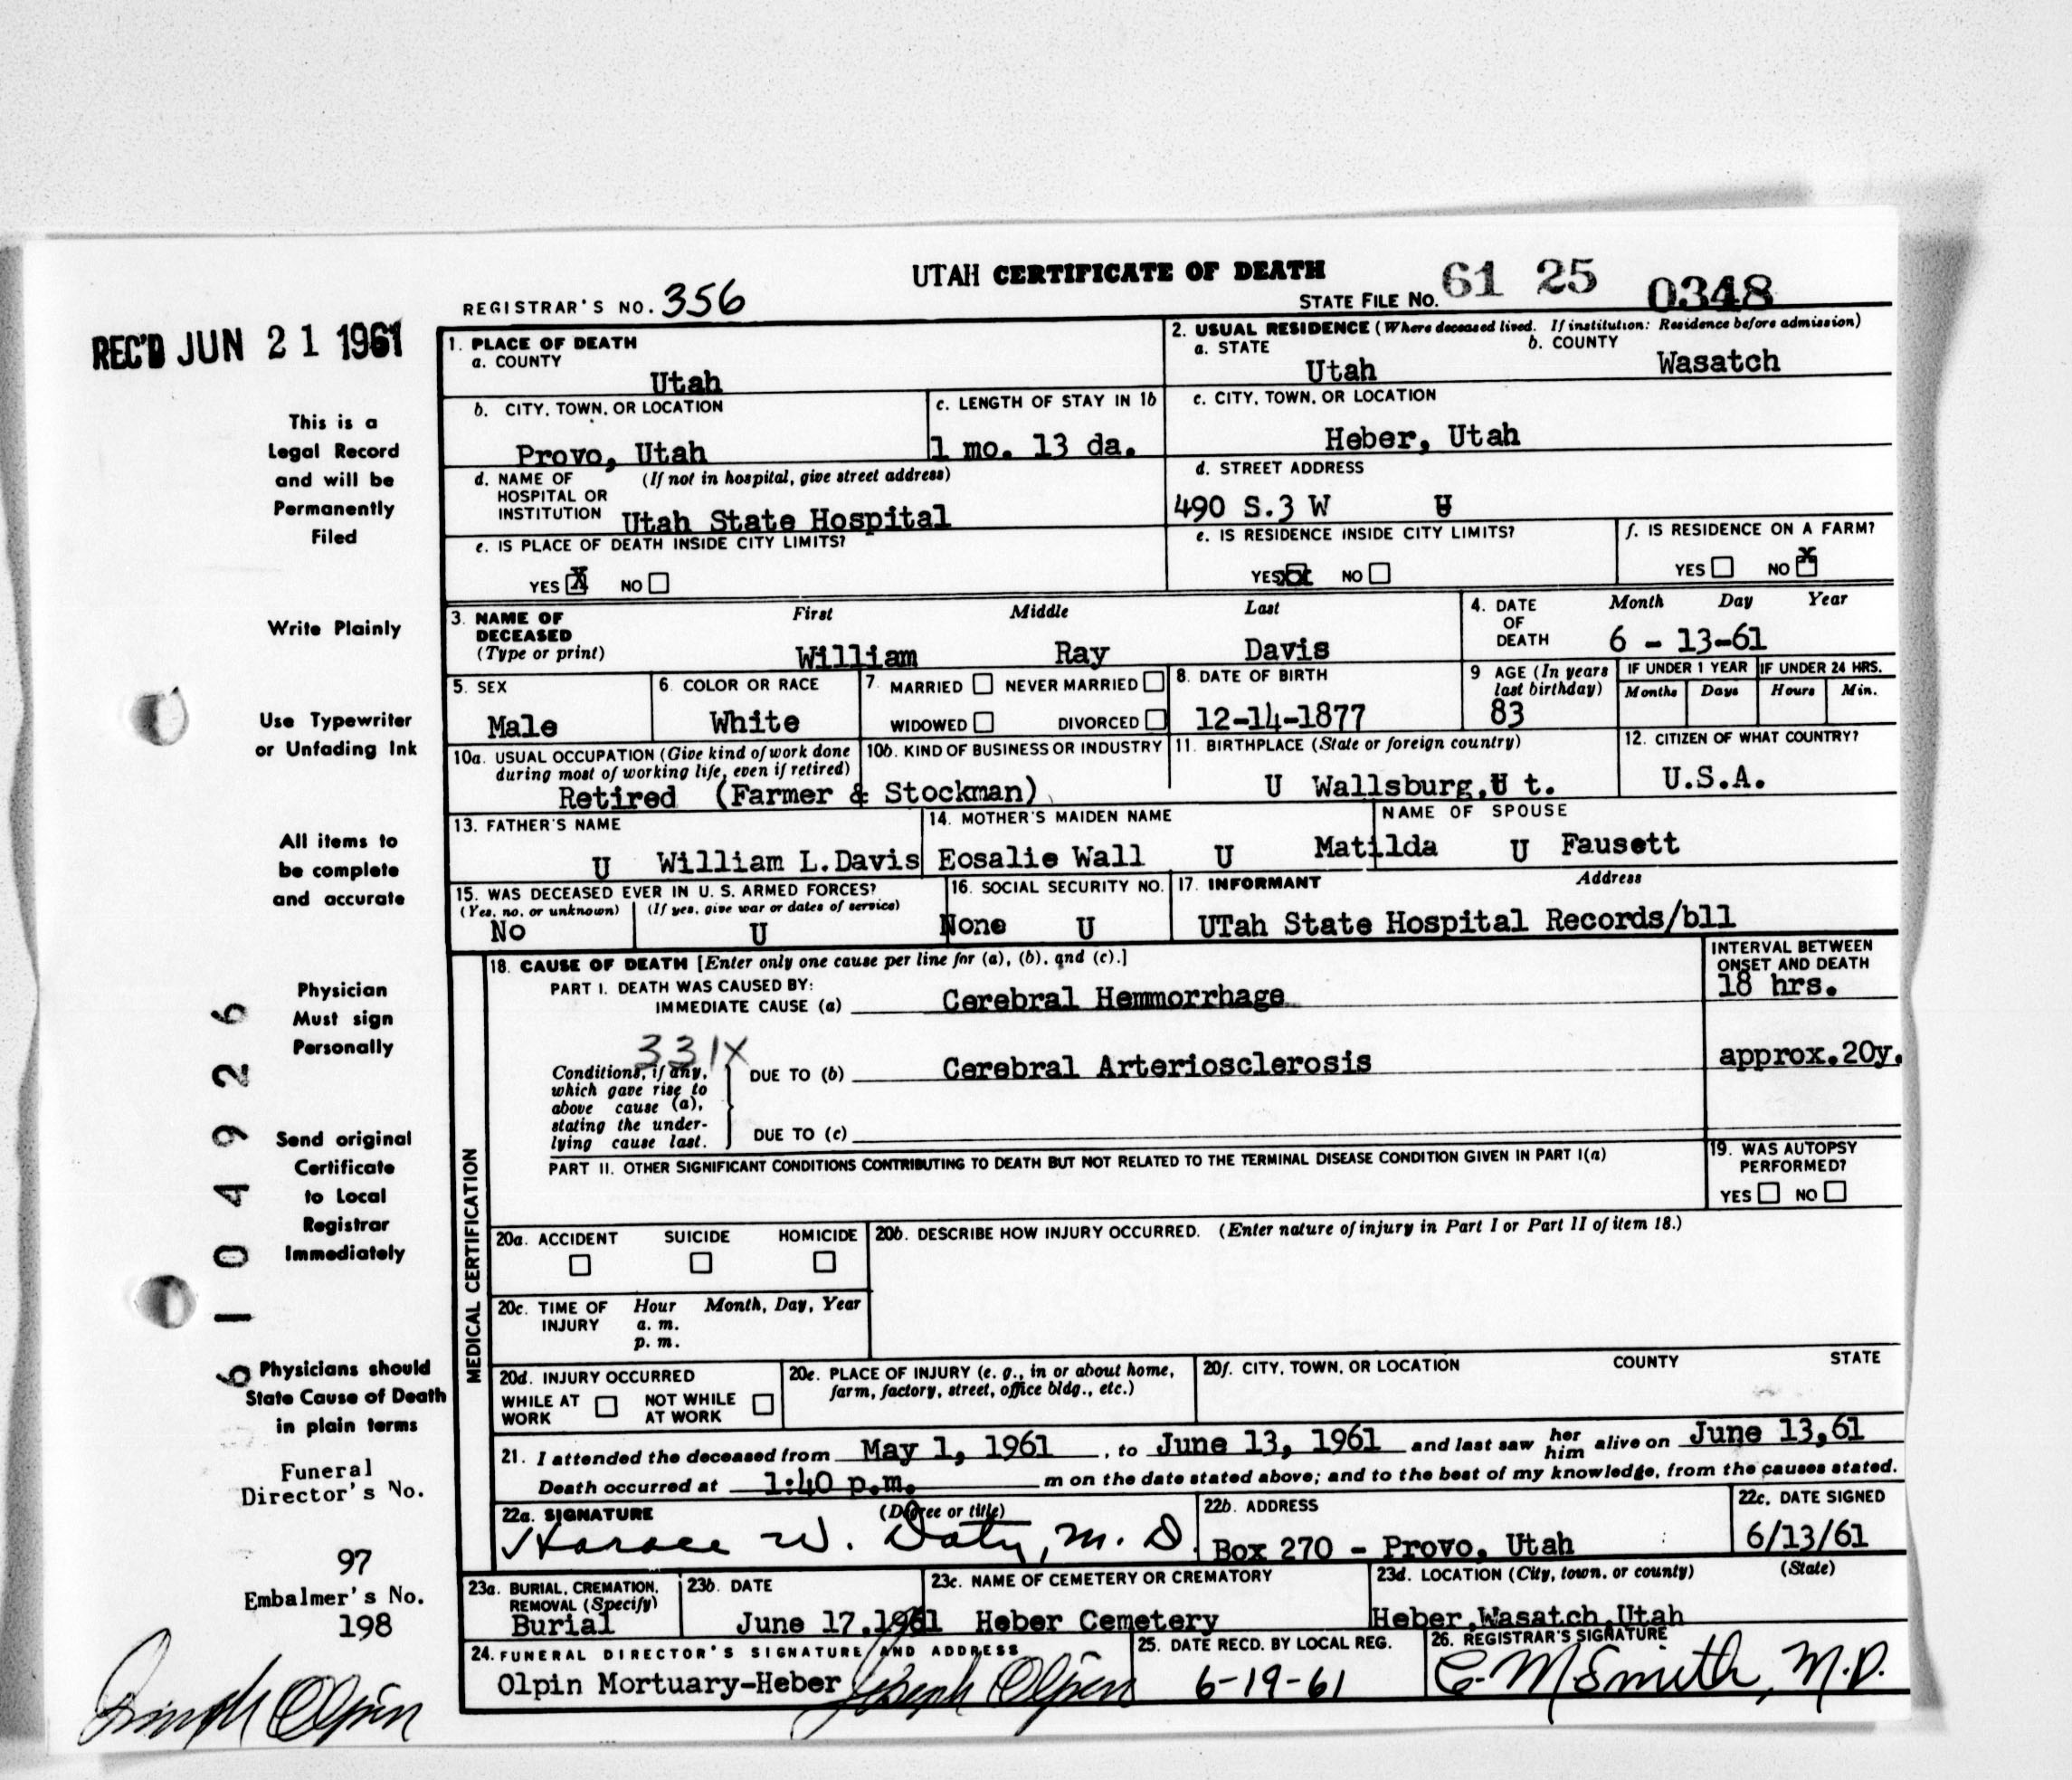 UTAH CERTIFICATE OF DEATH
REGISTRAR'S NO. 356
STATE FILE NO. 61 25 0348
REC'D JUN 21 1961
This is a
Legal Record
and will be
Permanently
Filed
Write Plainly
Use Typewriter
or Unfading Ink
All items to
be complete
and accurate
Physician
Must sign
Personally
Send original
Certificate
to Local
Registrar
Immediately
Physicians should
State Cause of Death
in plain terms
Funeral
Director's No.
97
Embalmer's No.
198
Joseph Olpin
6104926
1. PLACE OF DEATH
a. COUNTY
Utah
b. CITY, TOWN, OR LOCATION
Provo, Utah
c. LENGTH OF STAY IN 1b
1 mo. 13 da.
d. NAME OF (If not in hospital, give street address)
HOSPITAL OR
INSTITUTION Utah State Hospital
e. IS PLACE OF DEATH INSIDE CITY LIMITS?
YES X NO
2. USUAL RESIDENCE (Where deceased lived. If institution: Residence before admission)
a. STATE
Utah
b. COUNTY
Wasatch
c. CITY, TOWN, OR LOCATION
Heber, Utah
d. STREET ADDRESS
490 S.3 W U
e. IS RESIDENCE INSIDE CITY LIMITS?
YES X NO
f. IS RESIDENCE ON A FARM?
YES NO X
3. NAME OF
DECEASED
(Type or print)
First Middle Last
William Ray Davis
4. DATE
OF
DEATH
Month Day Year
6 - 13-61
5. SEX
Male
6. COLOR OR RACE
White
7. MARRIED NEVER MARRIED
WIDOWED DIVORCED
8. DATE OF BIRTH
12-14-1877
9 AGE (In years
last birthday)
83
IF UNDER 1 YEAR IF UNDER 24 HRS.
Months Days Hours Min.
10a. USUAL OCCUPATION (Give kind of work done
during most of working life, even if retired)
10b. KIND OF BUSINESS OR INDUSTRY
Retired (Farmer & Stockman)
11. BIRTHPLACE (State or foreign country)
U Wallsburg,U t.
12. CITIZEN OF WHAT COUNTRY?
U.S.A.
13. FATHER'S NAME
U William L.Davis
14. MOTHER'S MAIDEN NAME
Eosalie Wall U
NAME OF SPOUSE
Matilda U Fausett
15. WAS DECEASED EVER IN U. S. ARMED FORCES?
(Yes, no, or unknown) (If yes, give war or dates of service)
No U
16. SOCIAL SECURITY NO.
None U
17. INFORMANT Address
UTah State Hospital Records/bll
MEDICAL CERTIFICATION
18. CAUSE OF DEATH [Enter only one cause per line for (a), (b), and (c).]
PART I. DEATH WAS CAUSED BY:
IMMEDIATE CAUSE (a) Cerebral Hemmorrhage
INTERVAL BETWEEN
ONSET AND DEATH
18 hrs.
331X
Conditions, if any,
which gave rise to
above cause (a),
stating the under-
lying cause last.
DUE TO (b) Cerebral Arteriosclerosis
approx.20y.
DUE TO (c)
PART II. OTHER SIGNIFICANT CONDITIONS CONTRIBUTING TO DEATH BUT NOT RELATED TO THE TERMINAL DISEASE CONDITION GIVEN IN PART I(a)
19. WAS AUTOPSY
PERFORMED?
YES NO
20a. ACCIDENT SUICIDE HOMICIDE
20b. DESCRIBE HOW INJURY OCCURRED. (Enter nature of injury in Part I or Part II of item 18.)
20c. TIME OF Hour Month, Day, Year
INJURY a. m.
p. m.
20d. INJURY OCCURRED
WHILE AT NOT WHILE
WORK AT WORK
20e. PLACE OF INJURY (e. g., in or about home,
farm, factory, street, office bldg., etc.)
20f. CITY, TOWN, OR LOCATION COUNTY STATE
21. I attended the deceased from May 1, 1961, to June 13, 1961 and last saw her him alive on June 13,61
Death occurred at 1:40 p.m. m on the date stated above; and to the best of my knowledge, from the causes stated.
22a. SIGNATURE (Degree or title)
Horace W. Doty, M. D.
22b. ADDRESS
Box 270 - Provo, Utah
22c. DATE SIGNED
6/13/61
23a. BURIAL, CREMATION,
REMOVAL (Specify)
Burial
23b. DATE
June 17,1961
23c. NAME OF CEMETERY OR CREMATORY
Heber Cemetery
23d. LOCATION (City, town, or county) (State)
Heber,Wasatch,Utah
24. FUNERAL DIRECTOR'S SIGNATURE AND ADDRESS
Olpin Mortuary-Heber Joseph Olpin
25. DATE RECD. BY LOCAL REG.
6-19-61
26. REGISTRAR'S SIGNATURE
C M Smith, M.D.